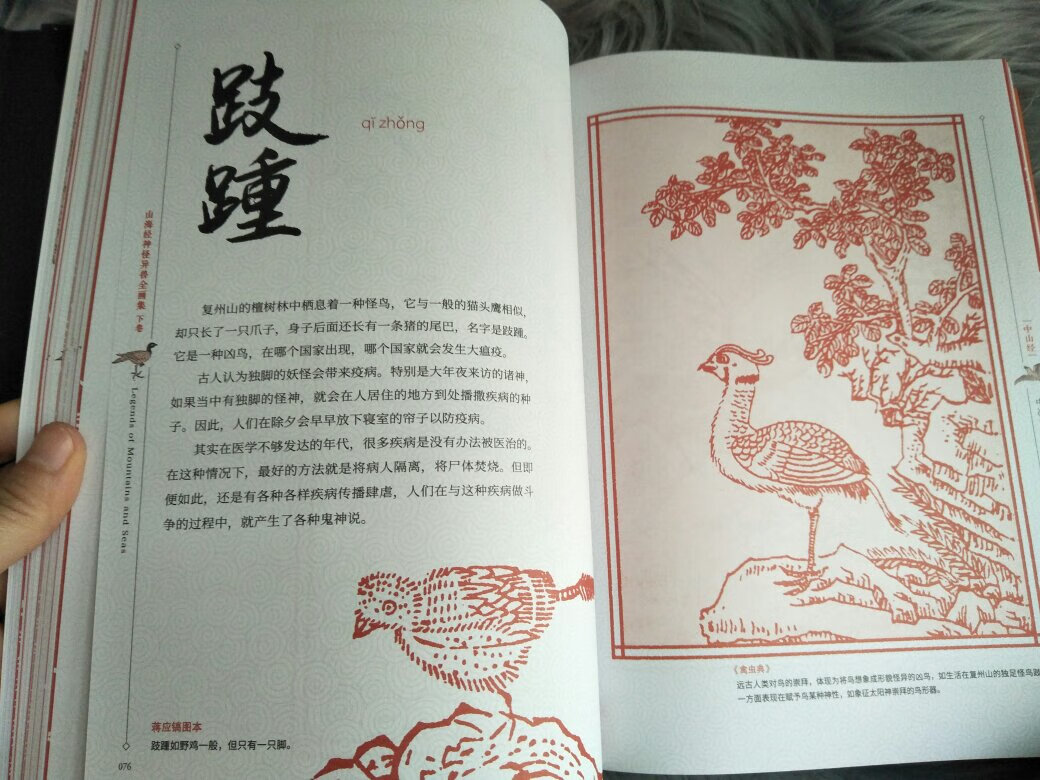 跂
踵
qǐ zhǒng
山海经神怪异兽全画集 下卷
Legends of Mountains and Seas
复州山的檀树林中栖息着一种怪鸟，它与一般的猫头鹰相似，
却只长了一只爪子，身子后面还长有一条猪的尾巴，名字是跂踵。
它是一种凶鸟，在哪个国家出现，哪个国家就会发生大瘟疫。
古人认为独脚的妖怪会带来疫病。特别是大年夜来访的诸神，
如果当中有独脚的怪神，就会在人居住的地方到处播撒疾病的种
子。因此，人们在除夕会早早放下寝室的帘子以防疫病。
其实在医学不够发达的年代，很多疾病是没有办法被医治的。
在这种情况下，最好的方法就是将病人隔离，将尸体焚烧。但即
便如此，还是有各种各样疾病传播肆虐，人们在与这种疾病做斗
争的过程中，就产生了各种鬼神说。
蒋应镐图本
跂踵如野鸡一般，但只有一只脚。
076
中山经
《禽虫典》
远古人类对鸟的崇拜，体现为将鸟想象成形貌怪异的凶鸟，如生活在复州山的独足怪鸟跂
一方面表现在赋予鸟某种神性，如象征太阳神崇拜的鸟形器。